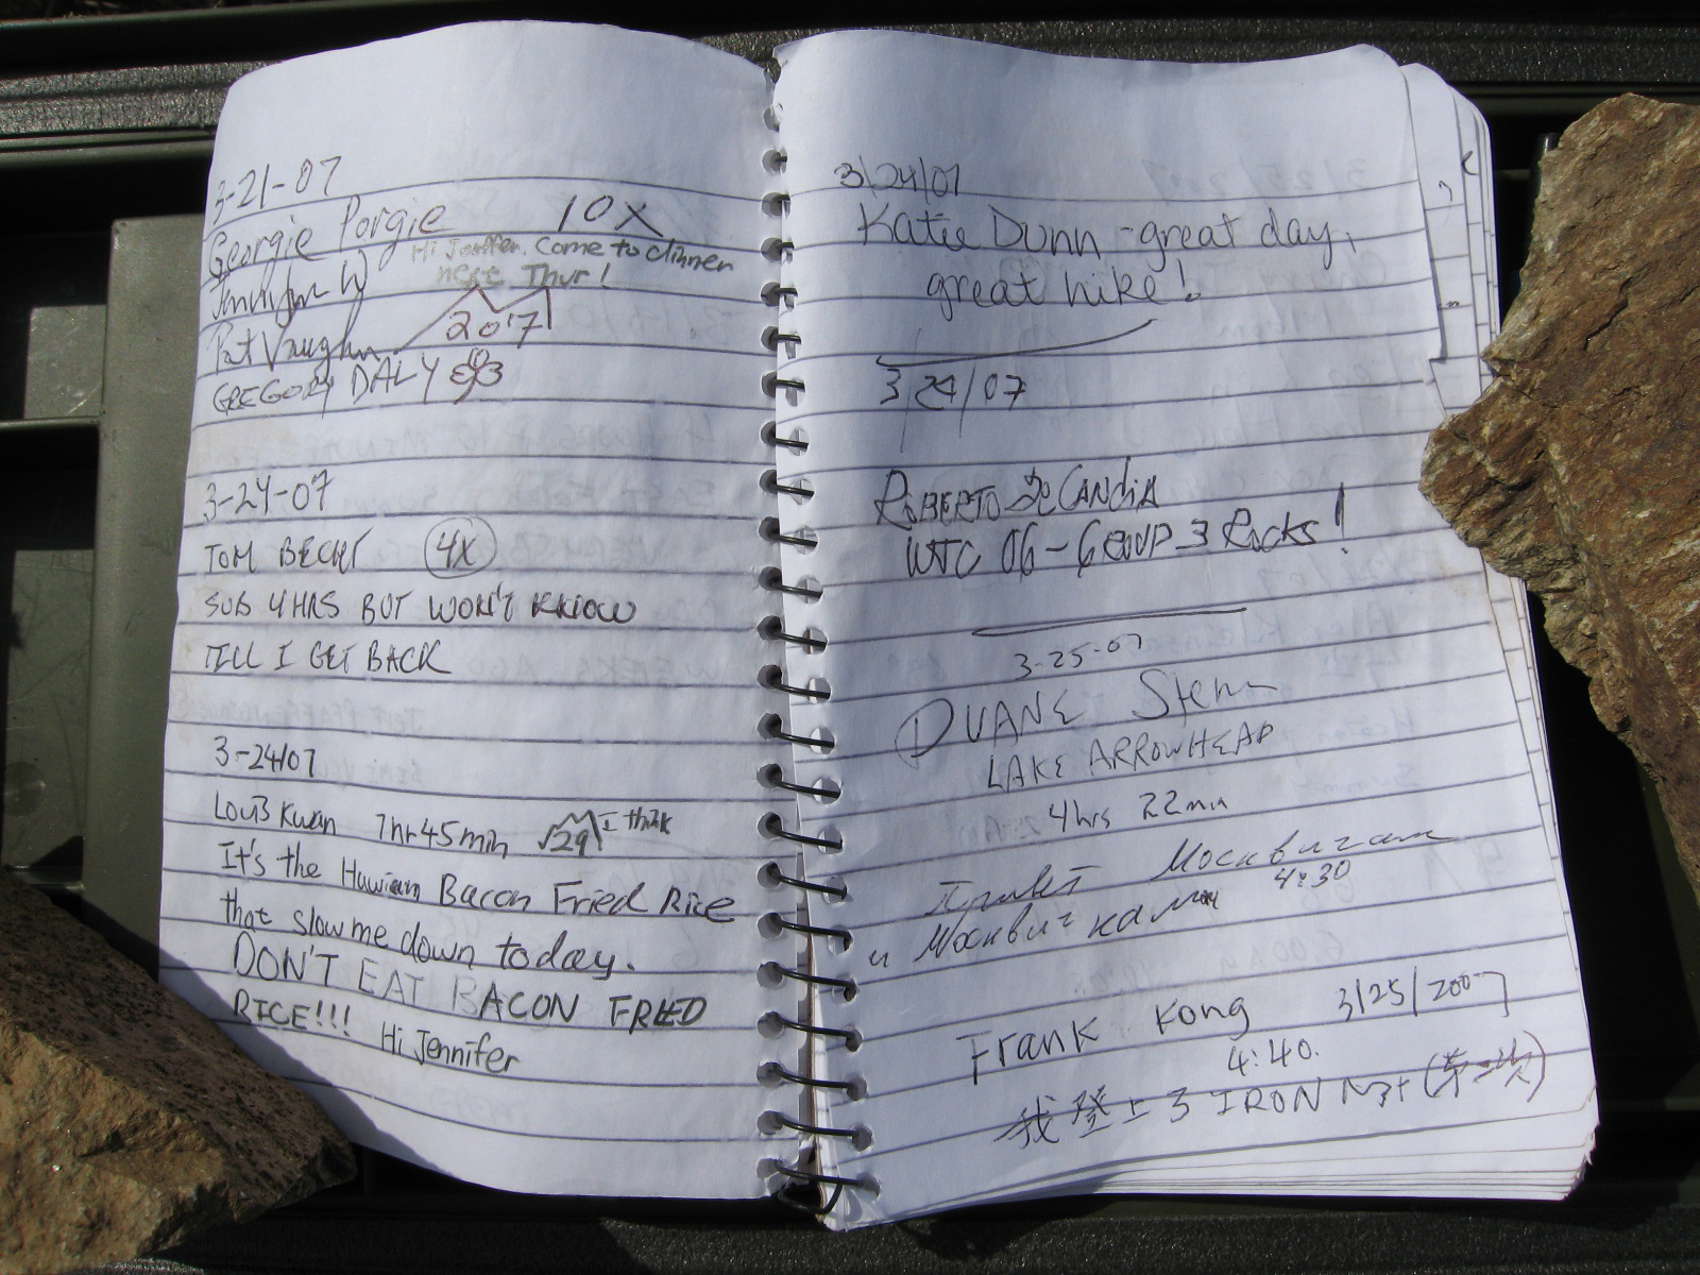 3-21-07
Georgie Porgie 10X
Hi Jeniffer. Come to dinner
next Thur!
Jennifer W
2017
Pat Vaughn
GREGORY DALY
3-24-07
TOM BECHT 4X
SUB 4HRS BUT WON'T KNOW
TILL I GET BACK
3-24/07
Louis Kwan 7hr45min √29 I think
It's the Hawiian Bacon Fried Rice
that slow me down today.
DON'T EAT BACON FRIED
RICE!!! Hi Jennifer
3/24/07
Katie Dunn - great day,
great hike!
3/24/07
ROBERTO De CANDiA
WTC 06 - GROUP 3 Rocks!
3-25-07
DUANE
LAKE ARROWHEAD
4hrs 22min
Привет Москвичам
4:30
и Москвичкам
Frank Kong 3/25/2007
4:40.
我登上了 IRON Mt (第一次)